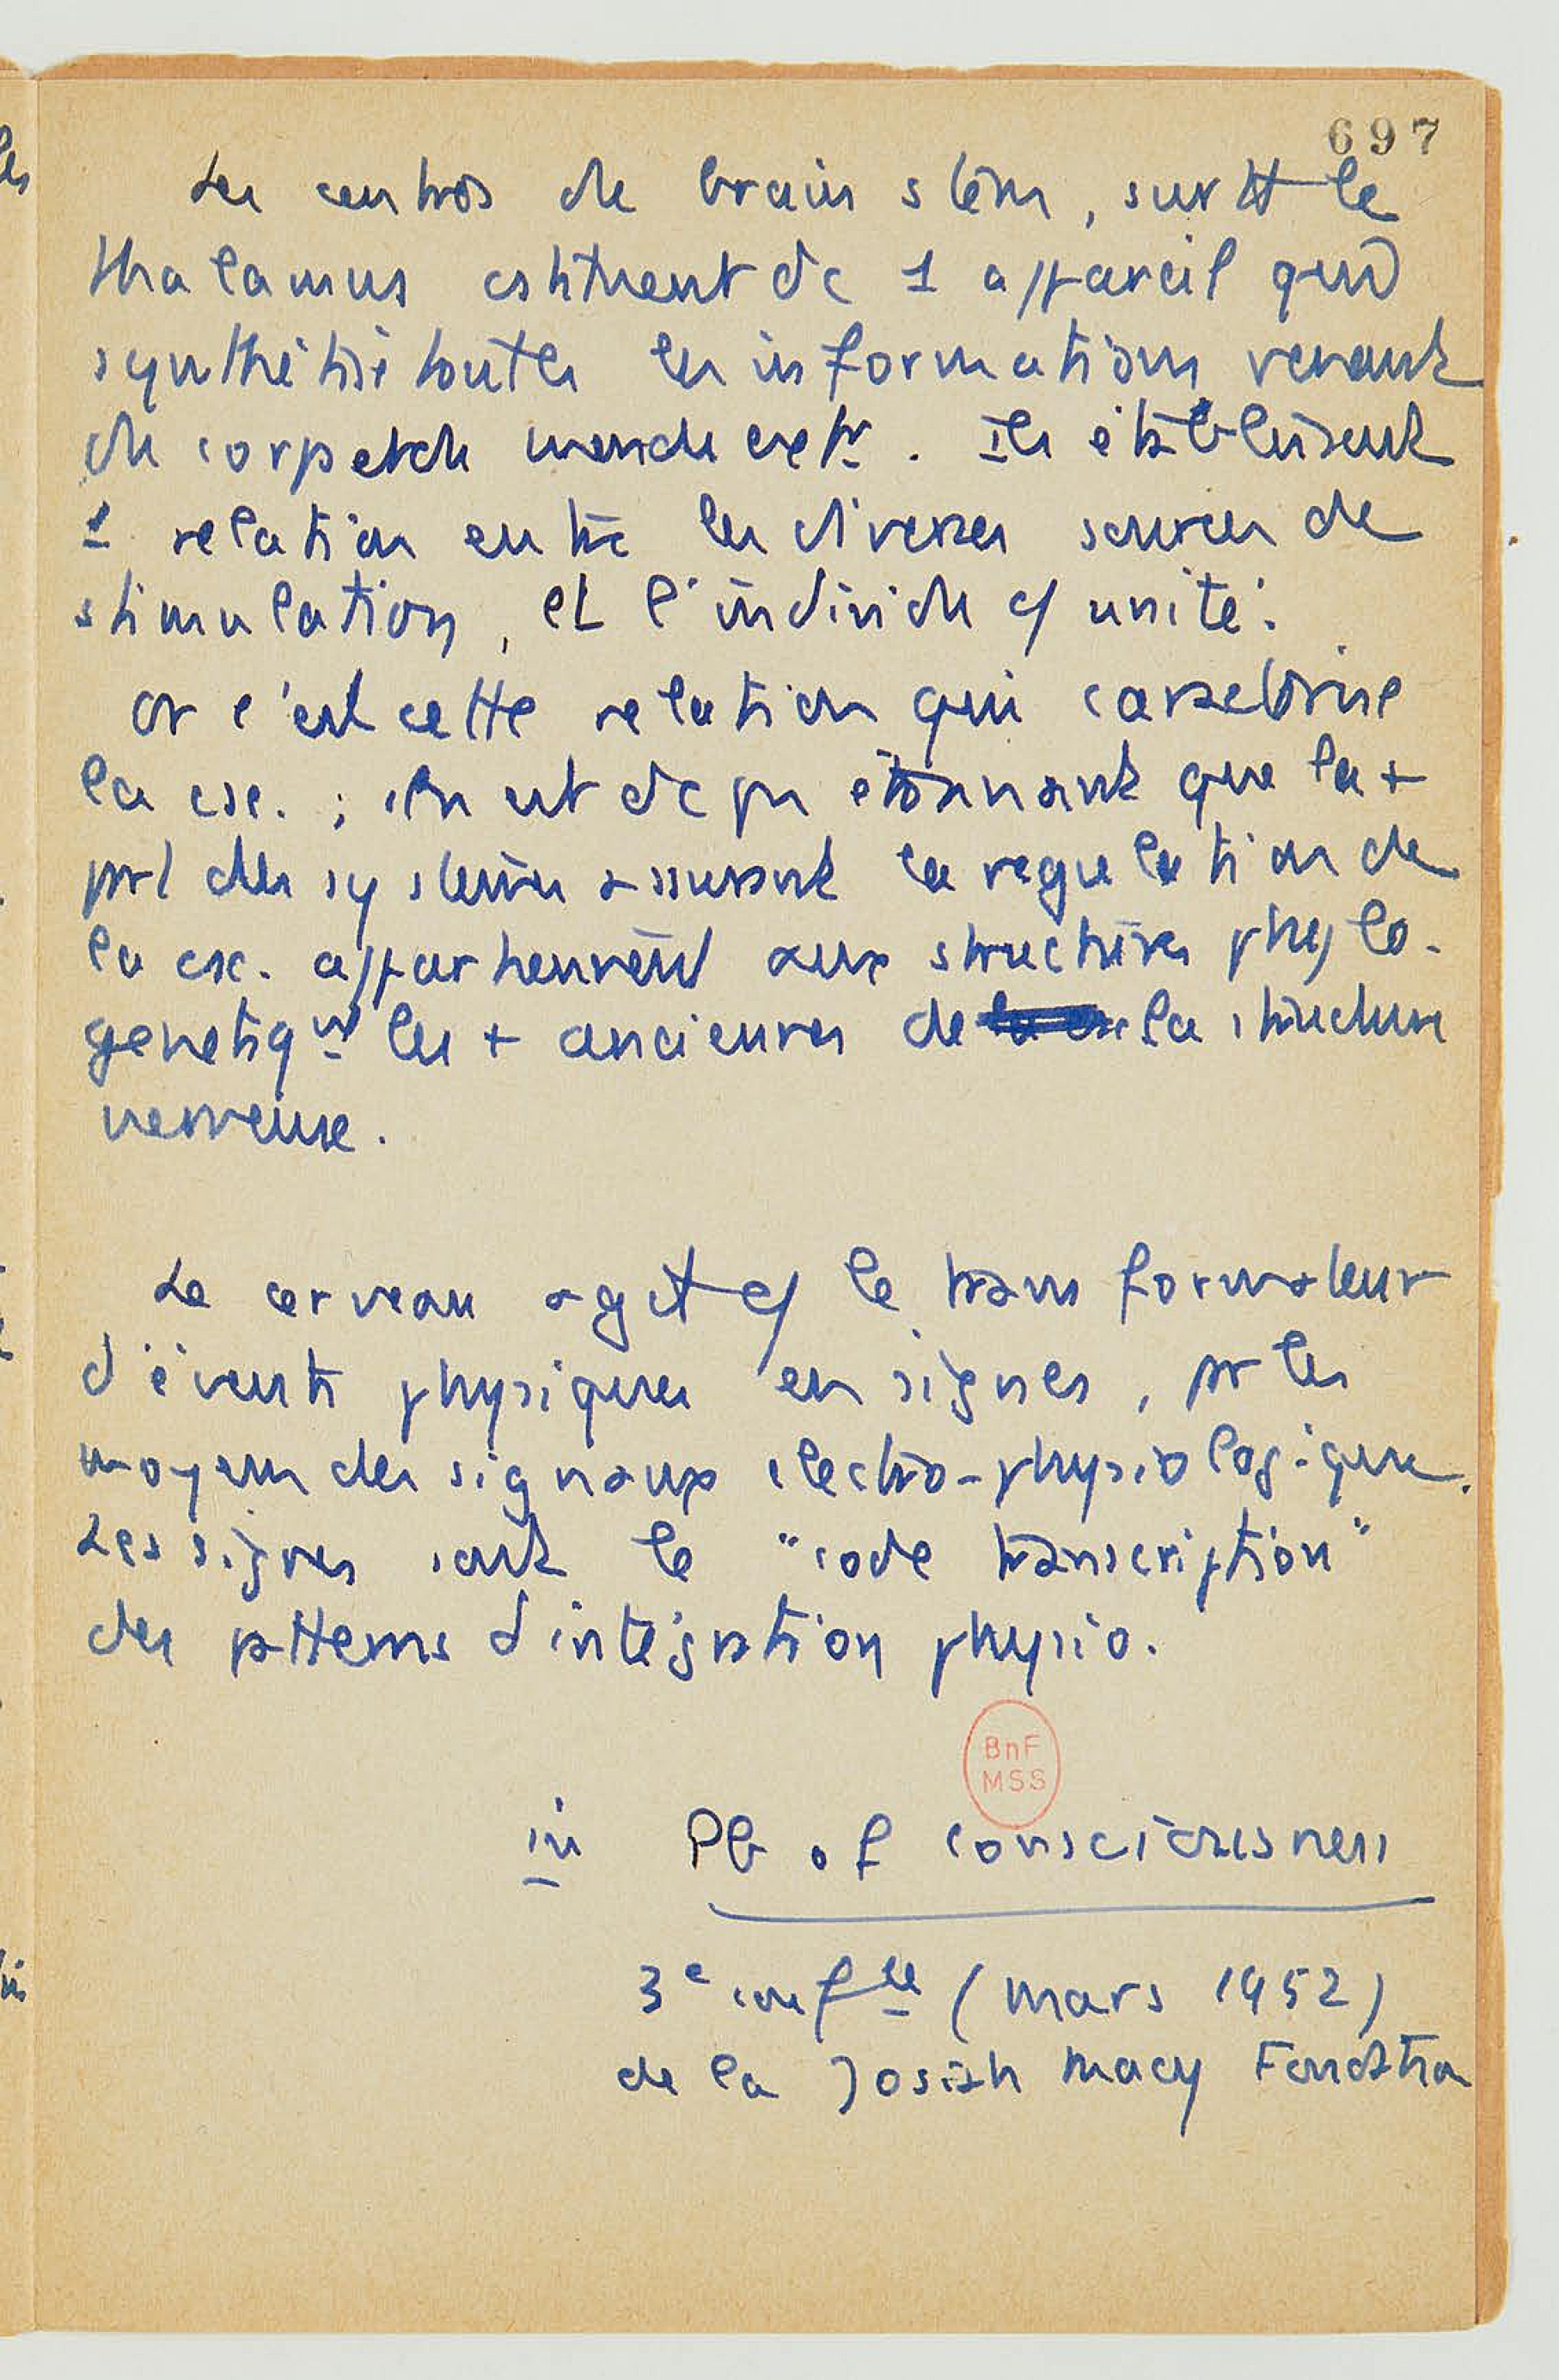 697
Les centres de brain stem, surtt le
thalamus cstituent dc 1 appareil qui
synthétise toutes les informations venant
du corps et du monde extr. Ils établissent
1 relation entre les diverses sources de
stimulation, et l'individu c/ unité.
Or c'est cette relation qui caractérise
la csc. ; il n'est dc pas étonnant que la +
part des systèmes assurant la régulation de
la csc. appartiennent aux structures phylo-
genetiqut les + anciennes de la structure
nerveuse.
Le cerveau agit c/ le transformateur
d'évents physiques en signes, par les
moyens des signaux electro-physiologiques.
Les signes sont le "code transcription"
des patterns d'intégration physio.
BnF
MSS
in Pb of consciousness
3e confce (mars 1952)
de la Josiah Macy Foundation